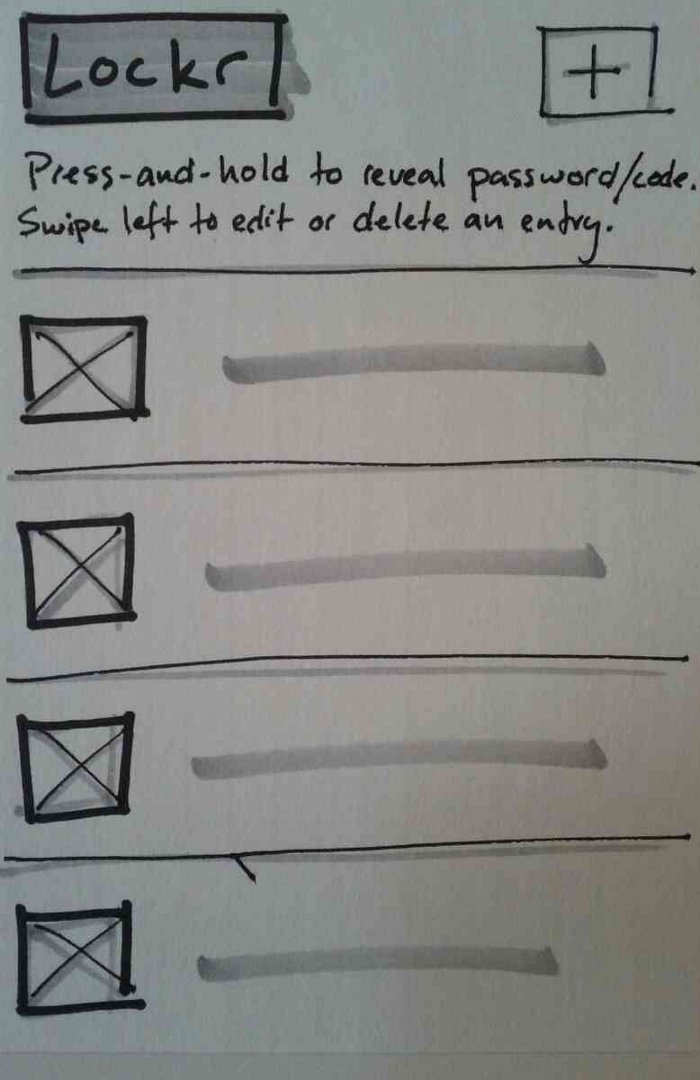 Lockr
+
Press-and-hold to reveal password/code.
Swipe left to edit or delete an entry.